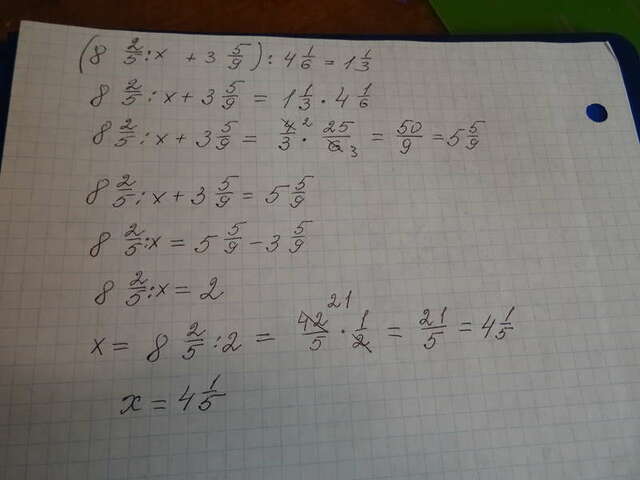 (8 2/5 : x + 3 5/9) : 4 1/6 = 1 1/3
8 2/5 : x + 3 5/9 = 1 1/3 · 4 1/6
8 2/5 : x + 3 5/9 = 4 2/3 · 25/6 3 = 50/9 = 5 5/9
8 2/5 : x + 3 5/9 = 5 5/9
8 2/5 : x = 5 5/9 - 3 5/9
8 2/5 : x = 2
x = 8 2/5 : 2 = 42 21/5 · 1/2 = 21/5 = 4 1/5
x = 4 1/5